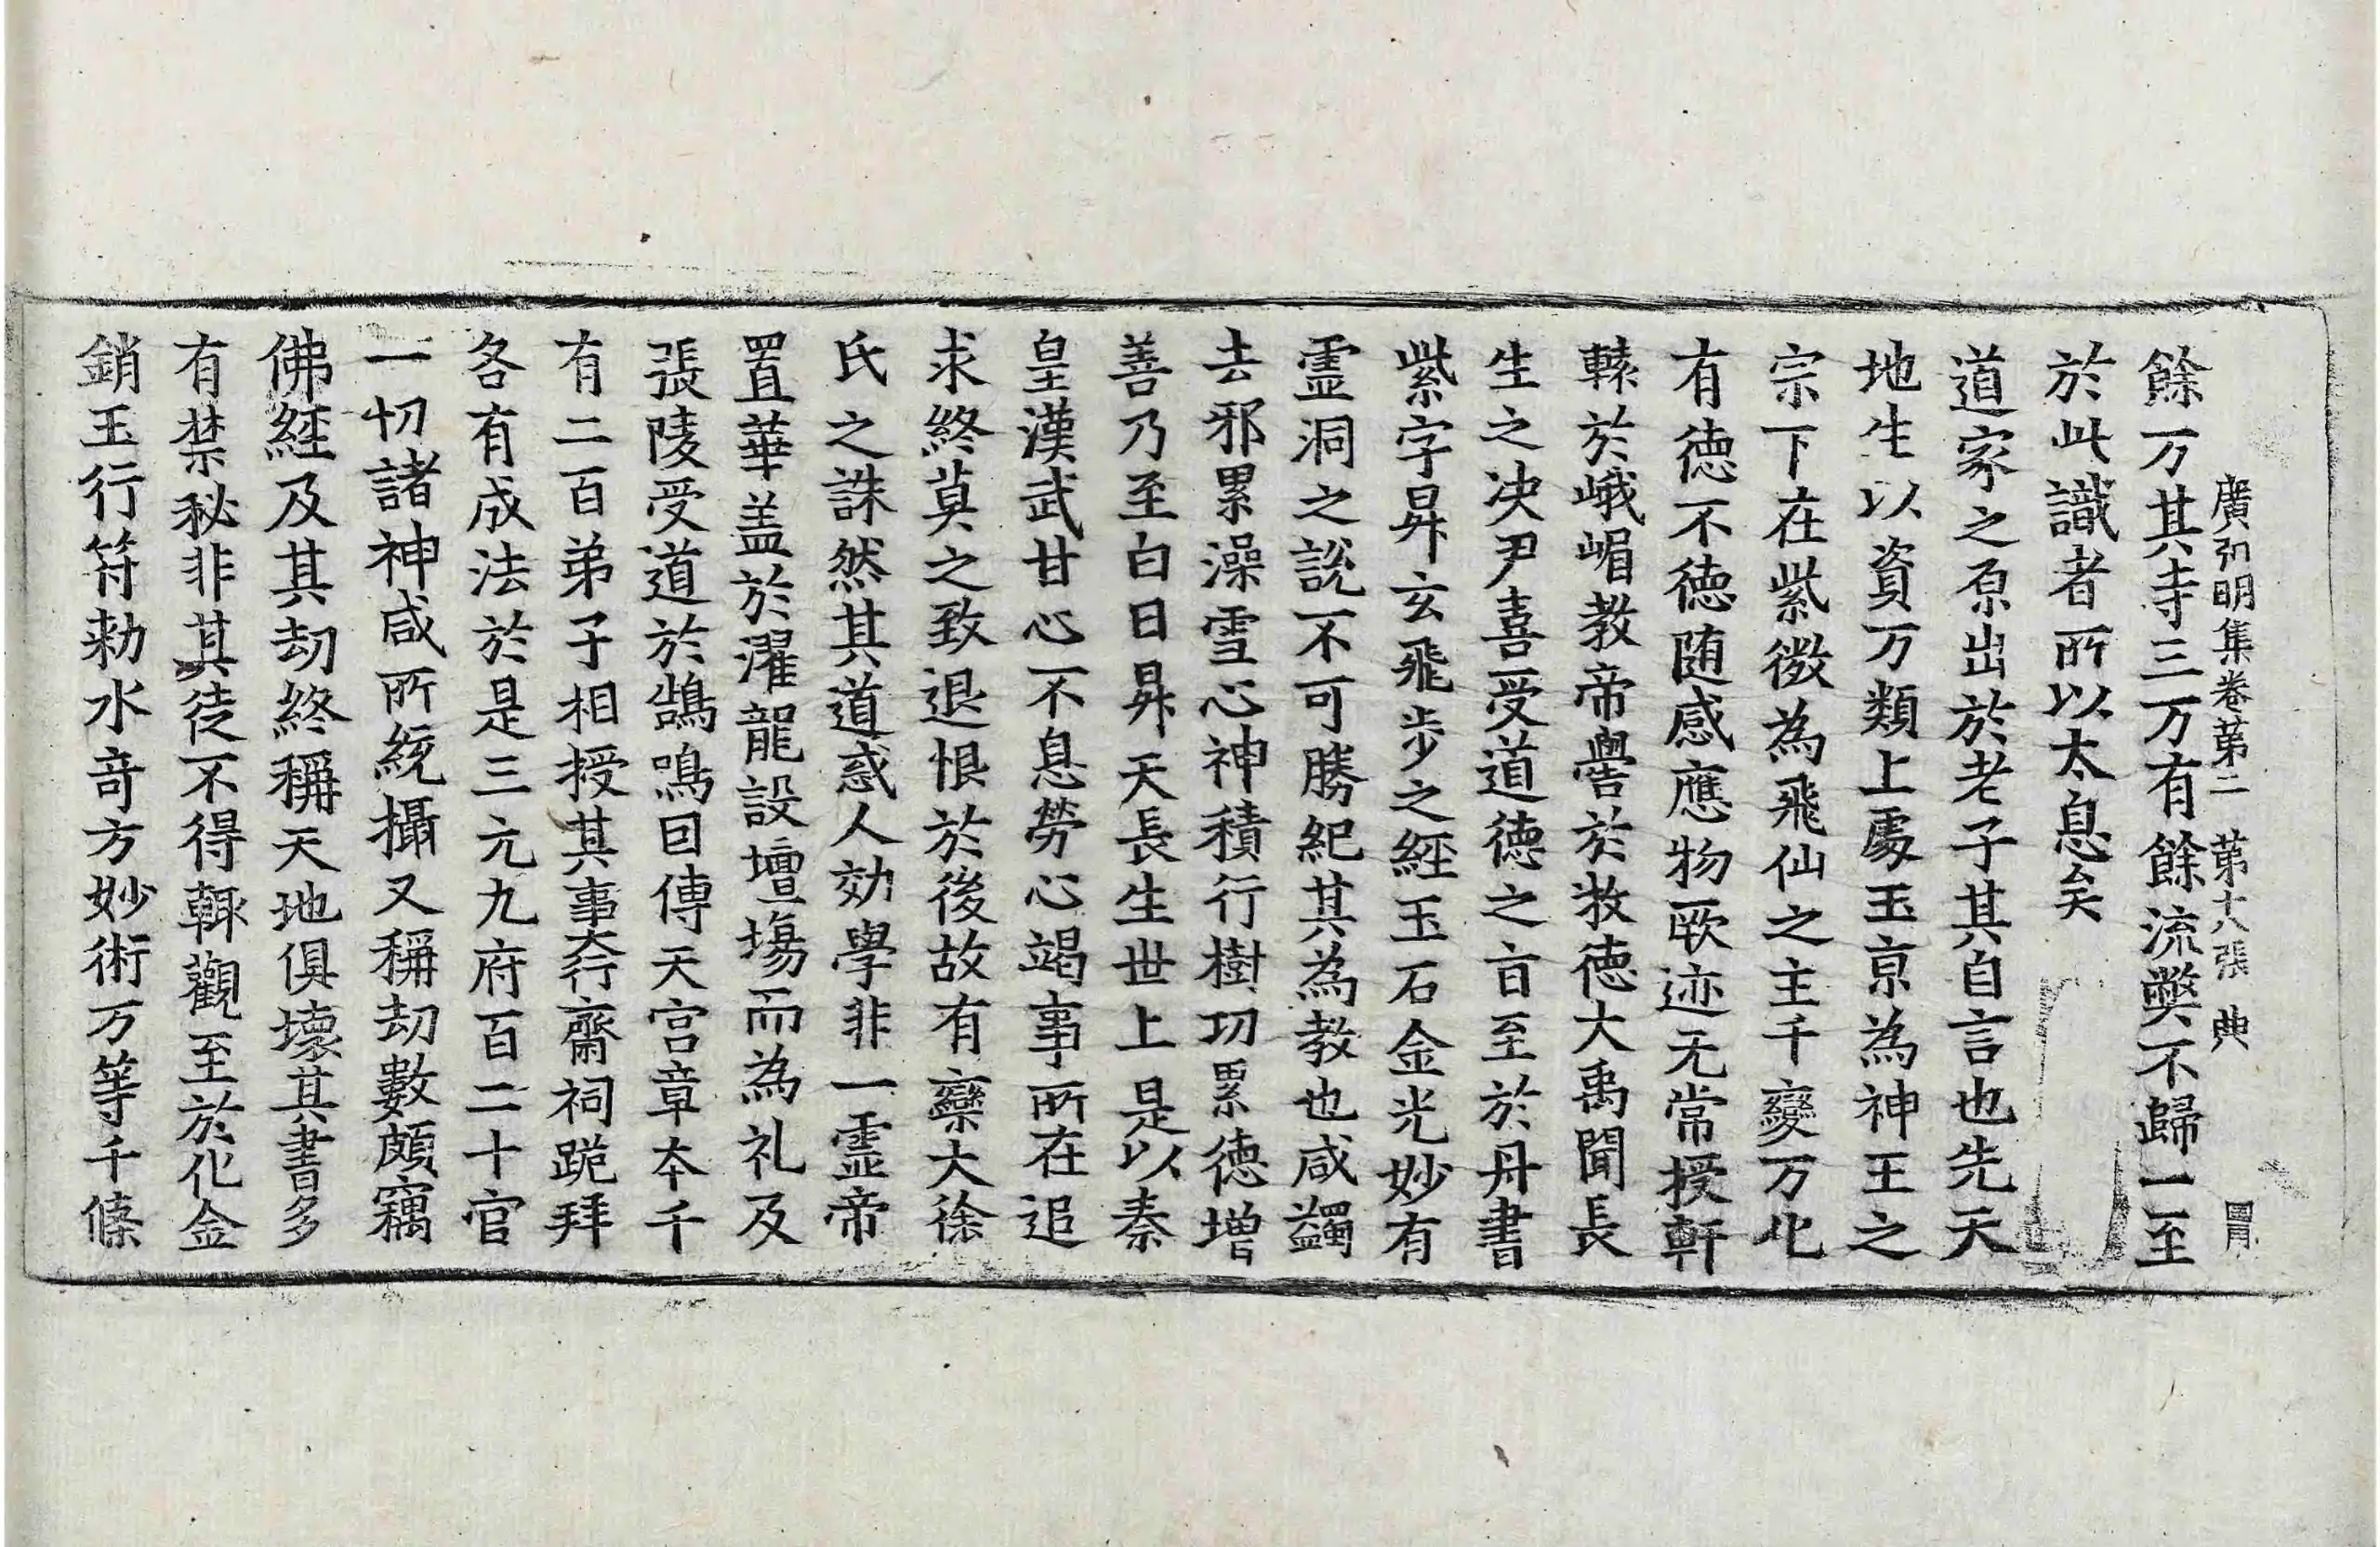 廣弘明集卷苐二 苐十八張 典 冐
餘万其寺三万有餘流獘不歸一至
於此識者所以太息矣
道家之原出於老子其自言也先天
地生以資万類上處玉京為神王之
宗下在紫微為飛仙之主千變万化
有徳不徳随感應物厥迹无常授軒
轅於峨嵋教帝嚳於牧徳大禹聞長
生之决尹喜受道徳之旨至於丹書
紫字昇玄飛步之經玉石金光妙有
霊洞之說不可勝紀其為教也咸蠲
去邪累澡雪心神積行樹功累徳增
善乃至白日昇天長生世上是以秦
皇漢武甘心不息勞心竭事所在追
求終莫之致退恨於後故有欒大徐
氏之誅然其道惑人効學非一霊帝
置華盖於濯龍設壇場而為礼及
張陵受道於鵠鳴因傳天宮章本千
有二百弟子相授其事大行齋祠跪拜
各有成法於是三元九府百二十官
一切諸神咸所統攝又稱劫數頗竊
佛經及其劫終稱天地俱壞其書多
有禁秘非其徒不得輙觀至於化金
銷玉行符勑水竒方妙術万等千條